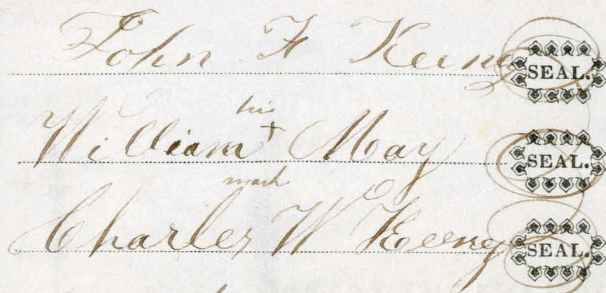 John F Keeney SEAL.
his
William + May SEAL.
mark
Charles W Keeney SEAL.